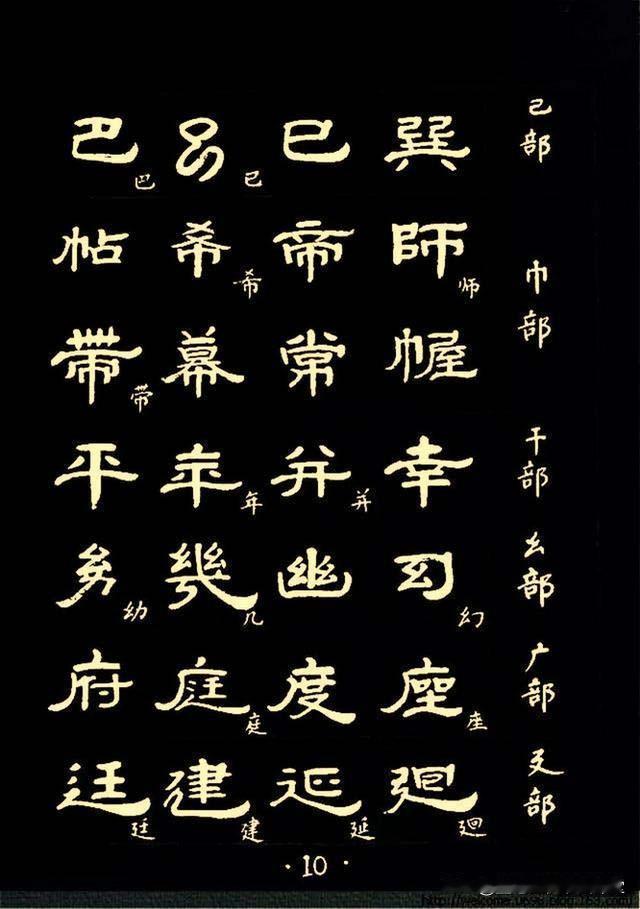 己部
巽 巳 㠯 已 巴 巴
巾部
師 师 帝 希 希 帖
幄 常 幕 帶 带
干部
幸 并 并 年 年 平
幺部
幻 幻 幽 幾 几 幼 幼
广部
座 座 度 庭 庭 府
廴部
廻 廻 延 延 建 建 廷 廷
·10·